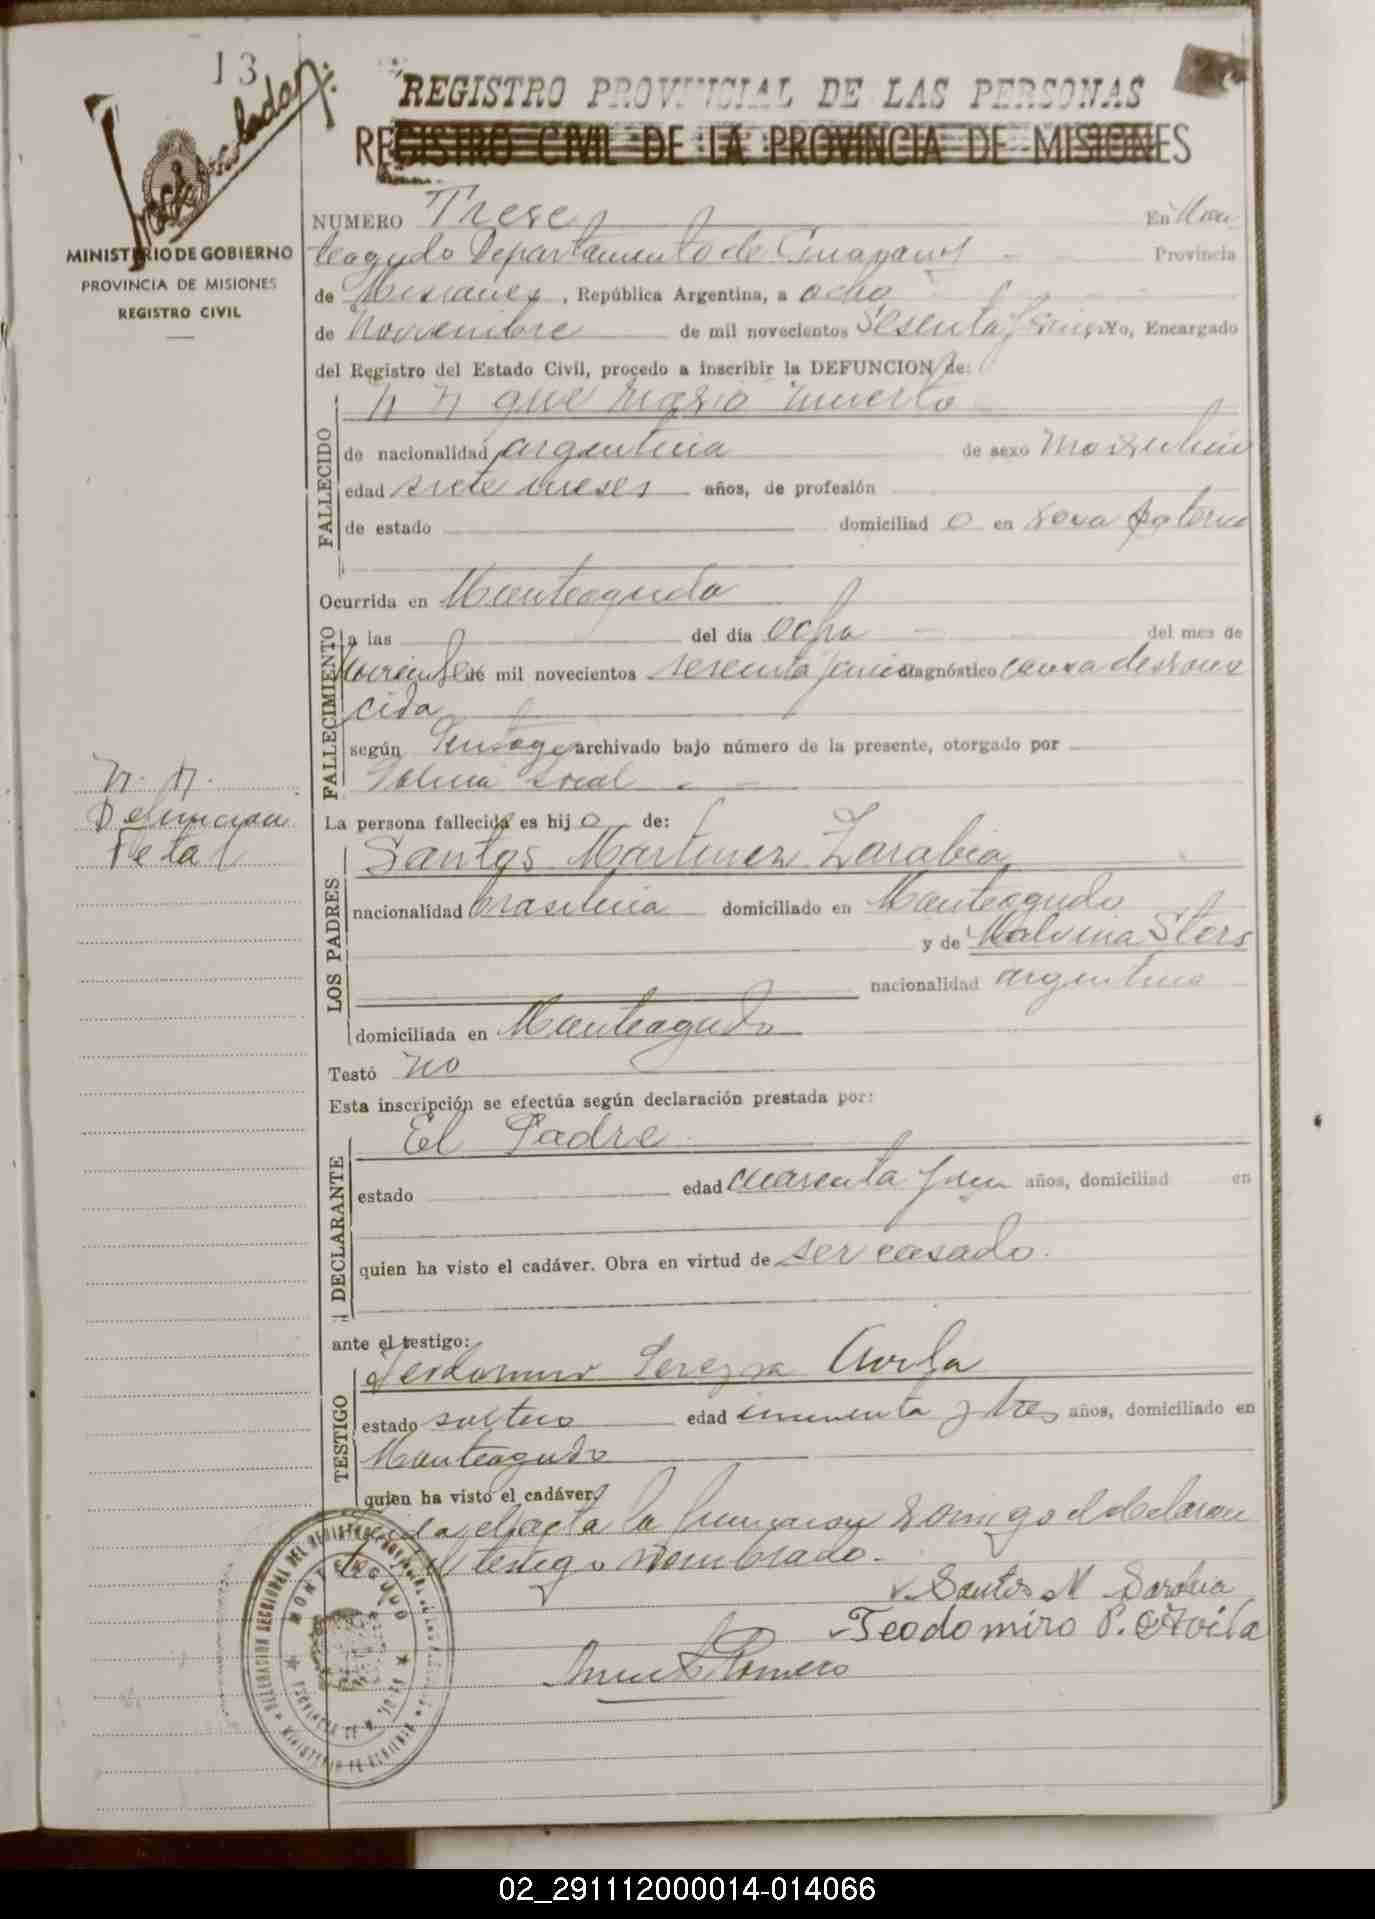 13
REGISTRO PROVINCIAL DE LAS PERSONAS
REGISTRO CIVIL DE LA PROVINCIA DE MISIONES
MINISTERIO DE GOBIERNO
PROVINCIA DE MISIONES
REGISTRO CIVIL
NUMERO Trese En Mon
teagudo Departamento de Guarani Provincia
de Misiones, República Argentina, a ocho
de Noviembre de mil novecientos sesenta y Yo, Encargado
del Registro del Estado Civil, procedo a inscribir la DEFUNCION de:
N N que nasio muerto
FALLECIDO
de nacionalidad argentina de sexo masculino
edad siete meses años, de profesión
de estado domiciliad o en paterna
Ocurrida en Monteagudo
FALLECIMIENTO
a las del día ocho del mes de
Noviembre de mil novecientos sesenta y diagnóstico causa descono
cida
según archivado bajo número de la presente, otorgado por
local
N. N.
Defuncion
Fetal
La persona fallecida es hij o de:
LOS PADRES
Santos Martinez Zarabia
nacionalidad brasilina domiciliado en Monteagudo
y de Malvina Sters
nacionalidad argentina
domiciliada en Monteagudo
Testó no
Esta inscripción se efectúa según declaración prestada por:
El Padre
DECLARANTE
estado edad cuarenta y años, domiciliad en
quien ha visto el cadáver. Obra en virtud de ser casado.
ante el testigo:
TESTIGO
Teodomiro Avila
estado soltero edad y tres años, domiciliado en
Monteagudo
quien ha visto el cadáver.
el acta la el declaran
testigo nombrado.
Santos M Sarabia
Teodomiro P. Avila
Romero
MONTEAGUDO
02_291112000014-014066